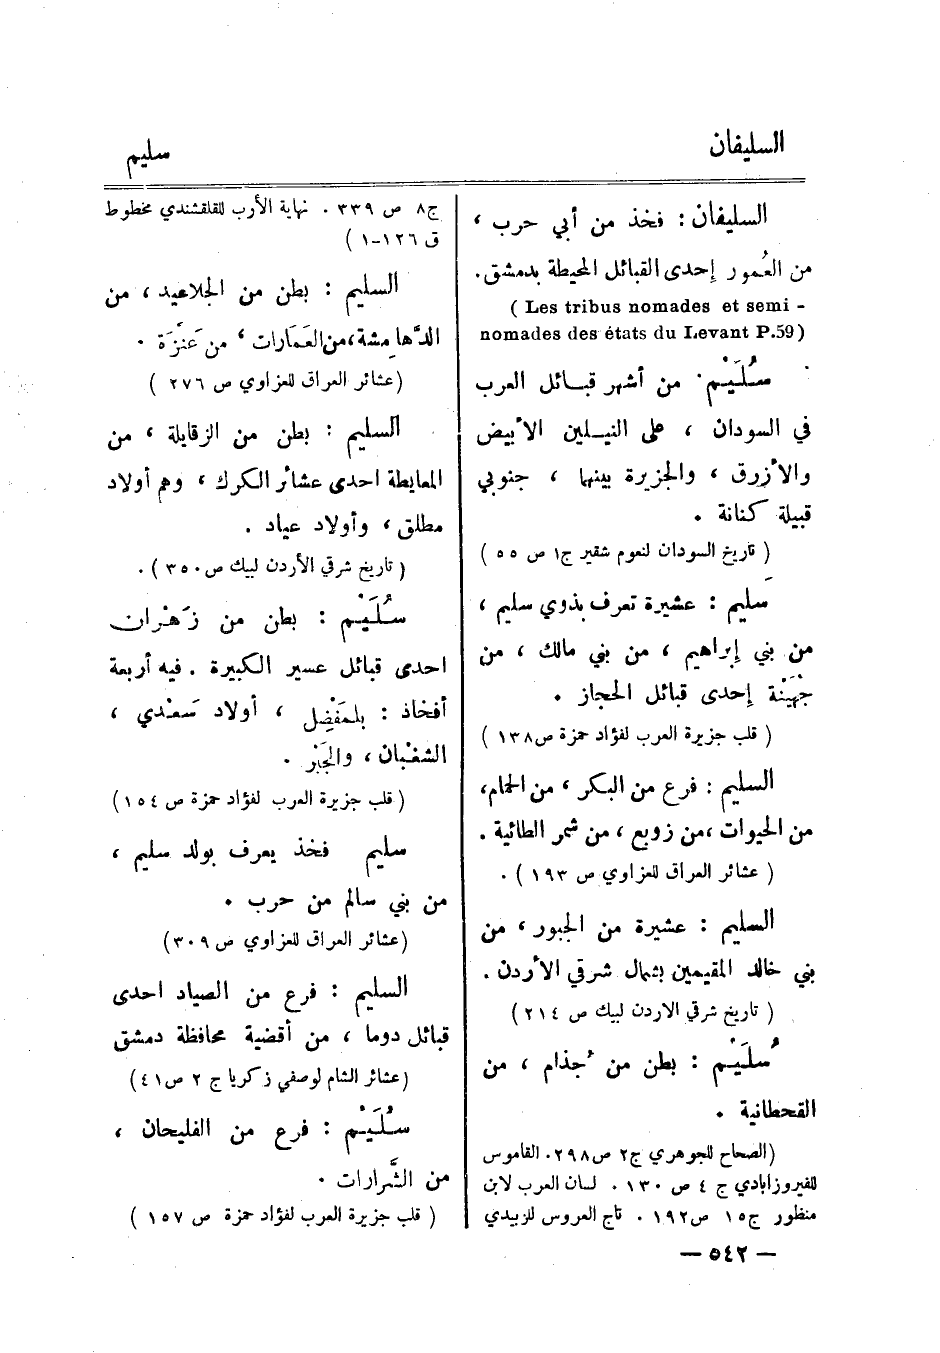 السليفان
سليم
السليفان : فخذ من أبي حرب ،
من العُمور إحدى القبائل المحيطة بدمشق.
( Les tribus nomades et semi -
nomades des états du Levant P.59)
سُلَيْم: من أشهر قبائل العرب
في السودان ، على النيلين الأبيض
والأزرق ، والجزيرة بينها ، جنوبي
قبيلة كنانة .
( تاريخ السودان لنعوم شقير ج١ ص ٥٥ )
سَليم : عشيرة تعرف بذوي سليم ،
من بني إبراهيم ، من بني مالك ، من
جُهَيْنة إحدى قبائل الحجاز .
( قلب جزيرة العرب لفؤاد حمزة ص١٣٨ )
السليم : فرع من البكر ، من الحمام،
من الحيوات ،من زوبع ، من شمر الطائية .
( عشائر العراق للعزاوي ص ١٩٣ ) .
السليم : عشيرة من الجبور ، من
بني خالد المقيمين بشمال شرقي الأردن .
( تاريخ شرقي الاردن لبيك ص ٢١٤ )
سُلَيْم : بطن من جُذام ، من
القحطانية .
(الصحاح للجوهري ج٢ ص٢٩٨. القاموس
للفيروزابادي ج ٤ ص ١٣٠ . لسان العرب لابن
منظور ج١٥ ص١٩٢ . تاج العروس للزبيدي
ج٨ ص ٣٣٩ . نهاية الأرب للقلقشندي مخطوط
ق ١٢٦-١ )
السليم : بطن من الجلاعيد ، من
الدَّهامِشة،من العَمَارات ، من عَنَزَة .
(عشائر العراق للعزاوي ص ٢٧٦ )
السليم : بطن من الزقايلة ، من
المعايطة احدى عشائر الكرك ، وهم أولاد
مطلق ، وأولاد عياد .
( تاريخ شرقي الأردن لبيك ص٣٥٠ ) .
سُلَيْم : بطن من زَهْران
احدى قبائل عسير الكبيرة . فيه أربعة
أفخاذ : بلمَفْضِل ، أولاد سَعْدي ،
الشغْبان ، والجَبْر .
( قلب جزيرة العرب لفؤاد حمزة ص ١٥٤ )
سليم فخذ يعرف بولد سليم ،
من بني سالم من حرب .
(عشائر العراق للعزاوي ص٣٠٩ )
السليم : فرع من الصياد احدى
قبائل دوما ، من أقضية محافظة دمشق
(عشائر الشام لوصفي زكريا ج ٢ ص٤١ )
سُلَيْم : فرع من الفليحان ،
من الشَّرارات .
( قلب جزيرة العرب لفؤاد حمزة ص ١٥٧ )
— ٥٤٢ —